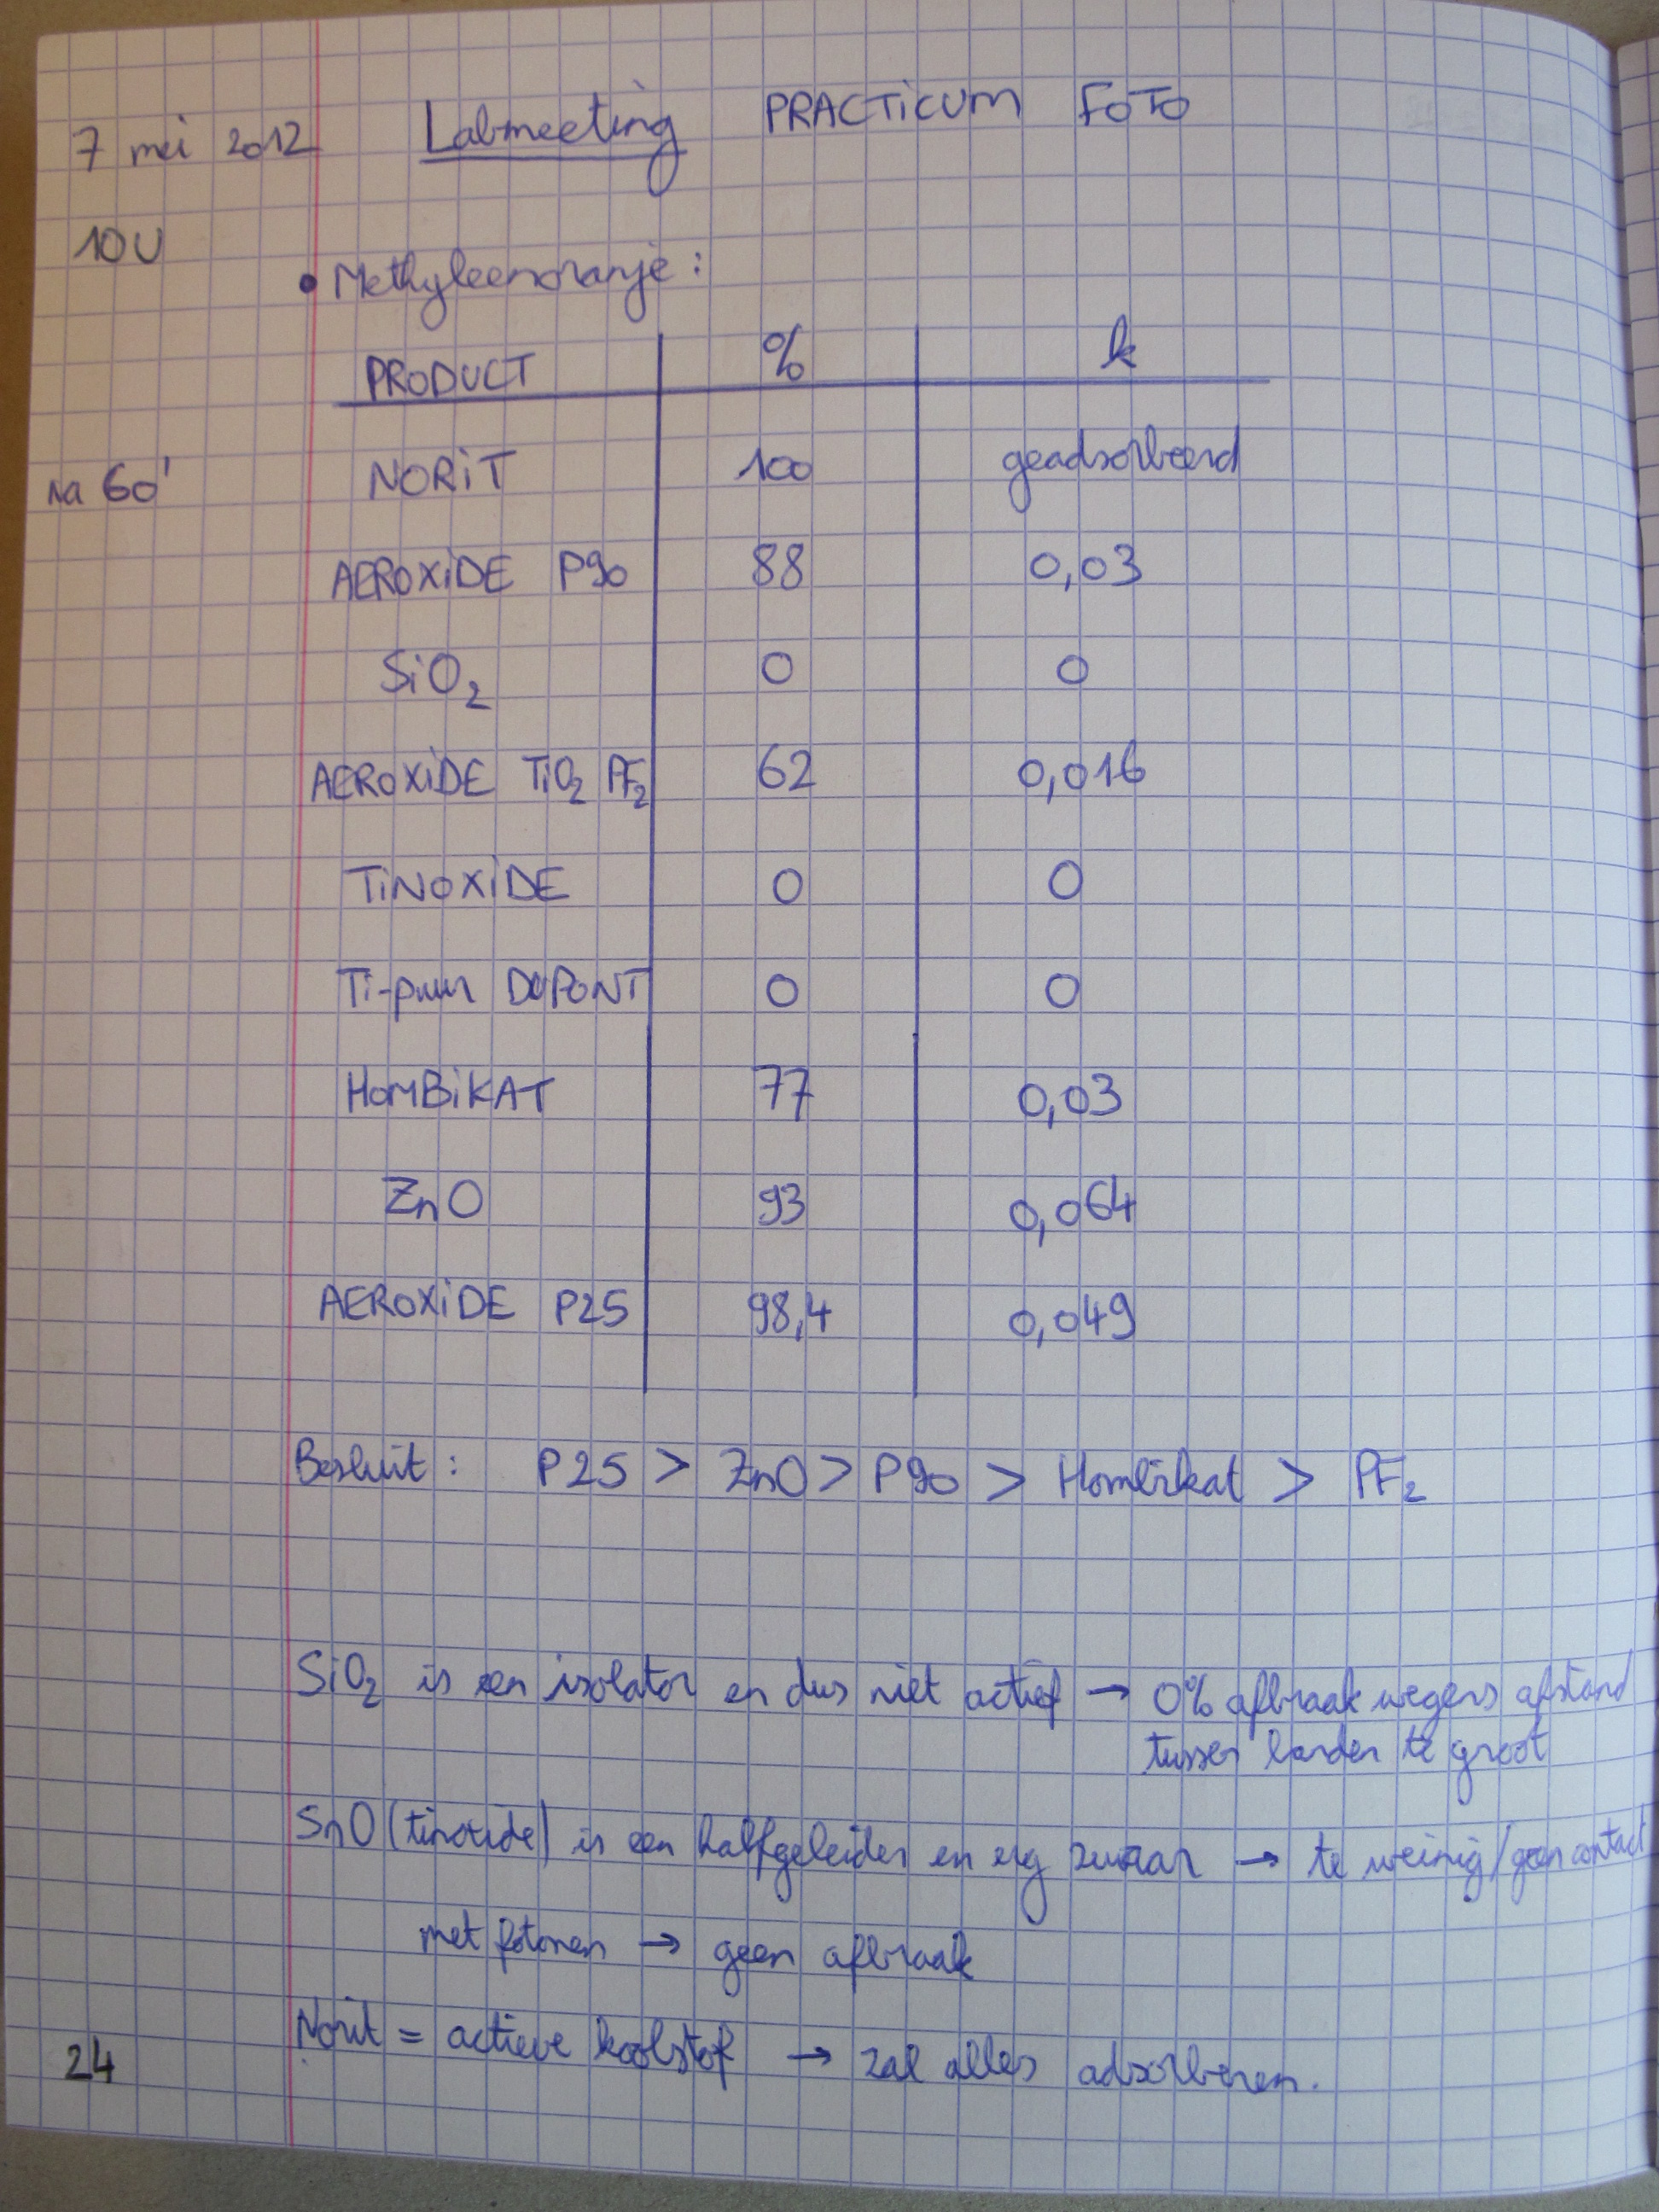 7 mei 2012 Labmeeting PRACTICUM FOTO
10U
• Methyleenoranje :
PRODUCT % k
na 60' NORIT 100 geadsorbeerd
AEROXIDE P90 88 0,03
SiO2 0 0
AEROXIDE TiO2 PF2 62 0,016
TINOXIDE 0 0
Ti-puur DUPONT 0 0
HOMBIKAT 77 0,03
ZnO 93 0,064
AEROXIDE P25 98,4 0,049
Besluit : P25 > ZnO > P90 > Hombikat > PF2
SiO2 is een isolator en dus niet actief → 0% afbraak wegens afstand
tussen banden te groot
SnO (tinoxide) is een halfgeleider en erg zwaar → te weinig/geen contact
met fotonen → geen afbraak
Norit = actieve koolstof → zal alles adsorberen.
24